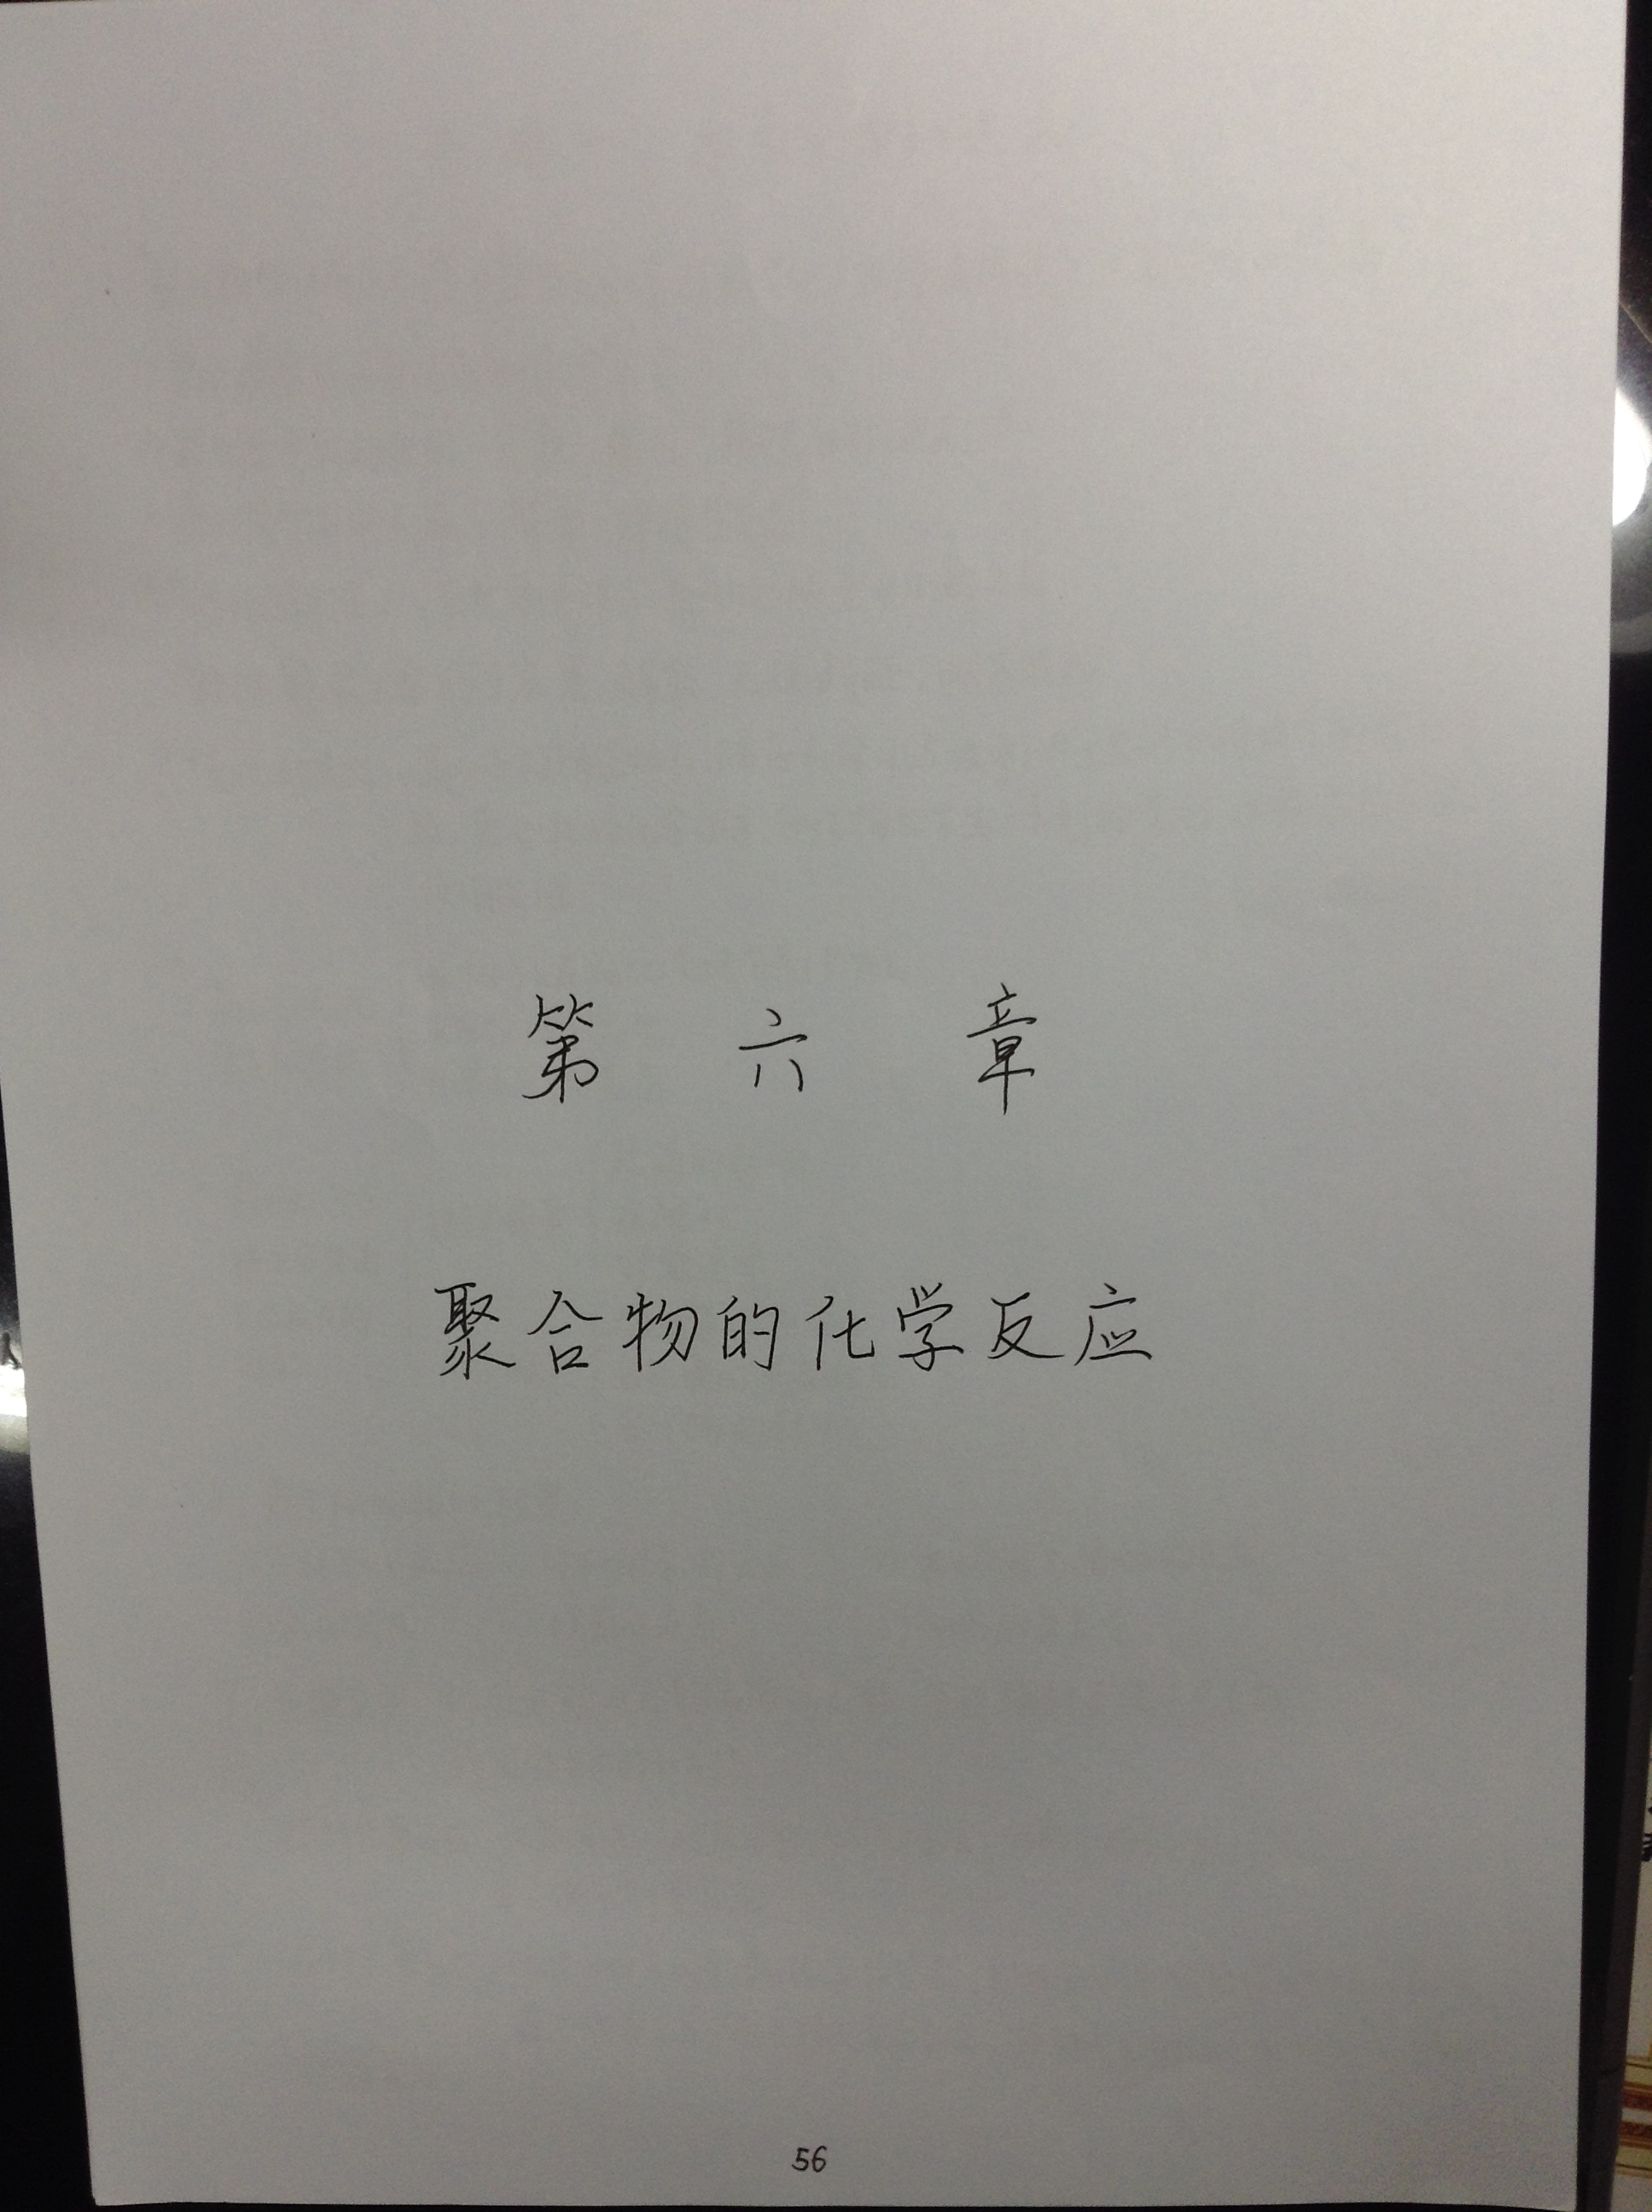 第六章
聚合物的化学反应
56